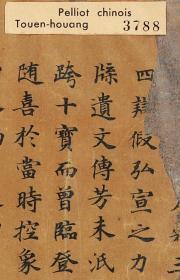 Pelliot chinois
Touen-houang 3788
四辯假弘宣之力
牒遺文傳芳未泯
跨十寶而曾臨登
随喜於當時控象